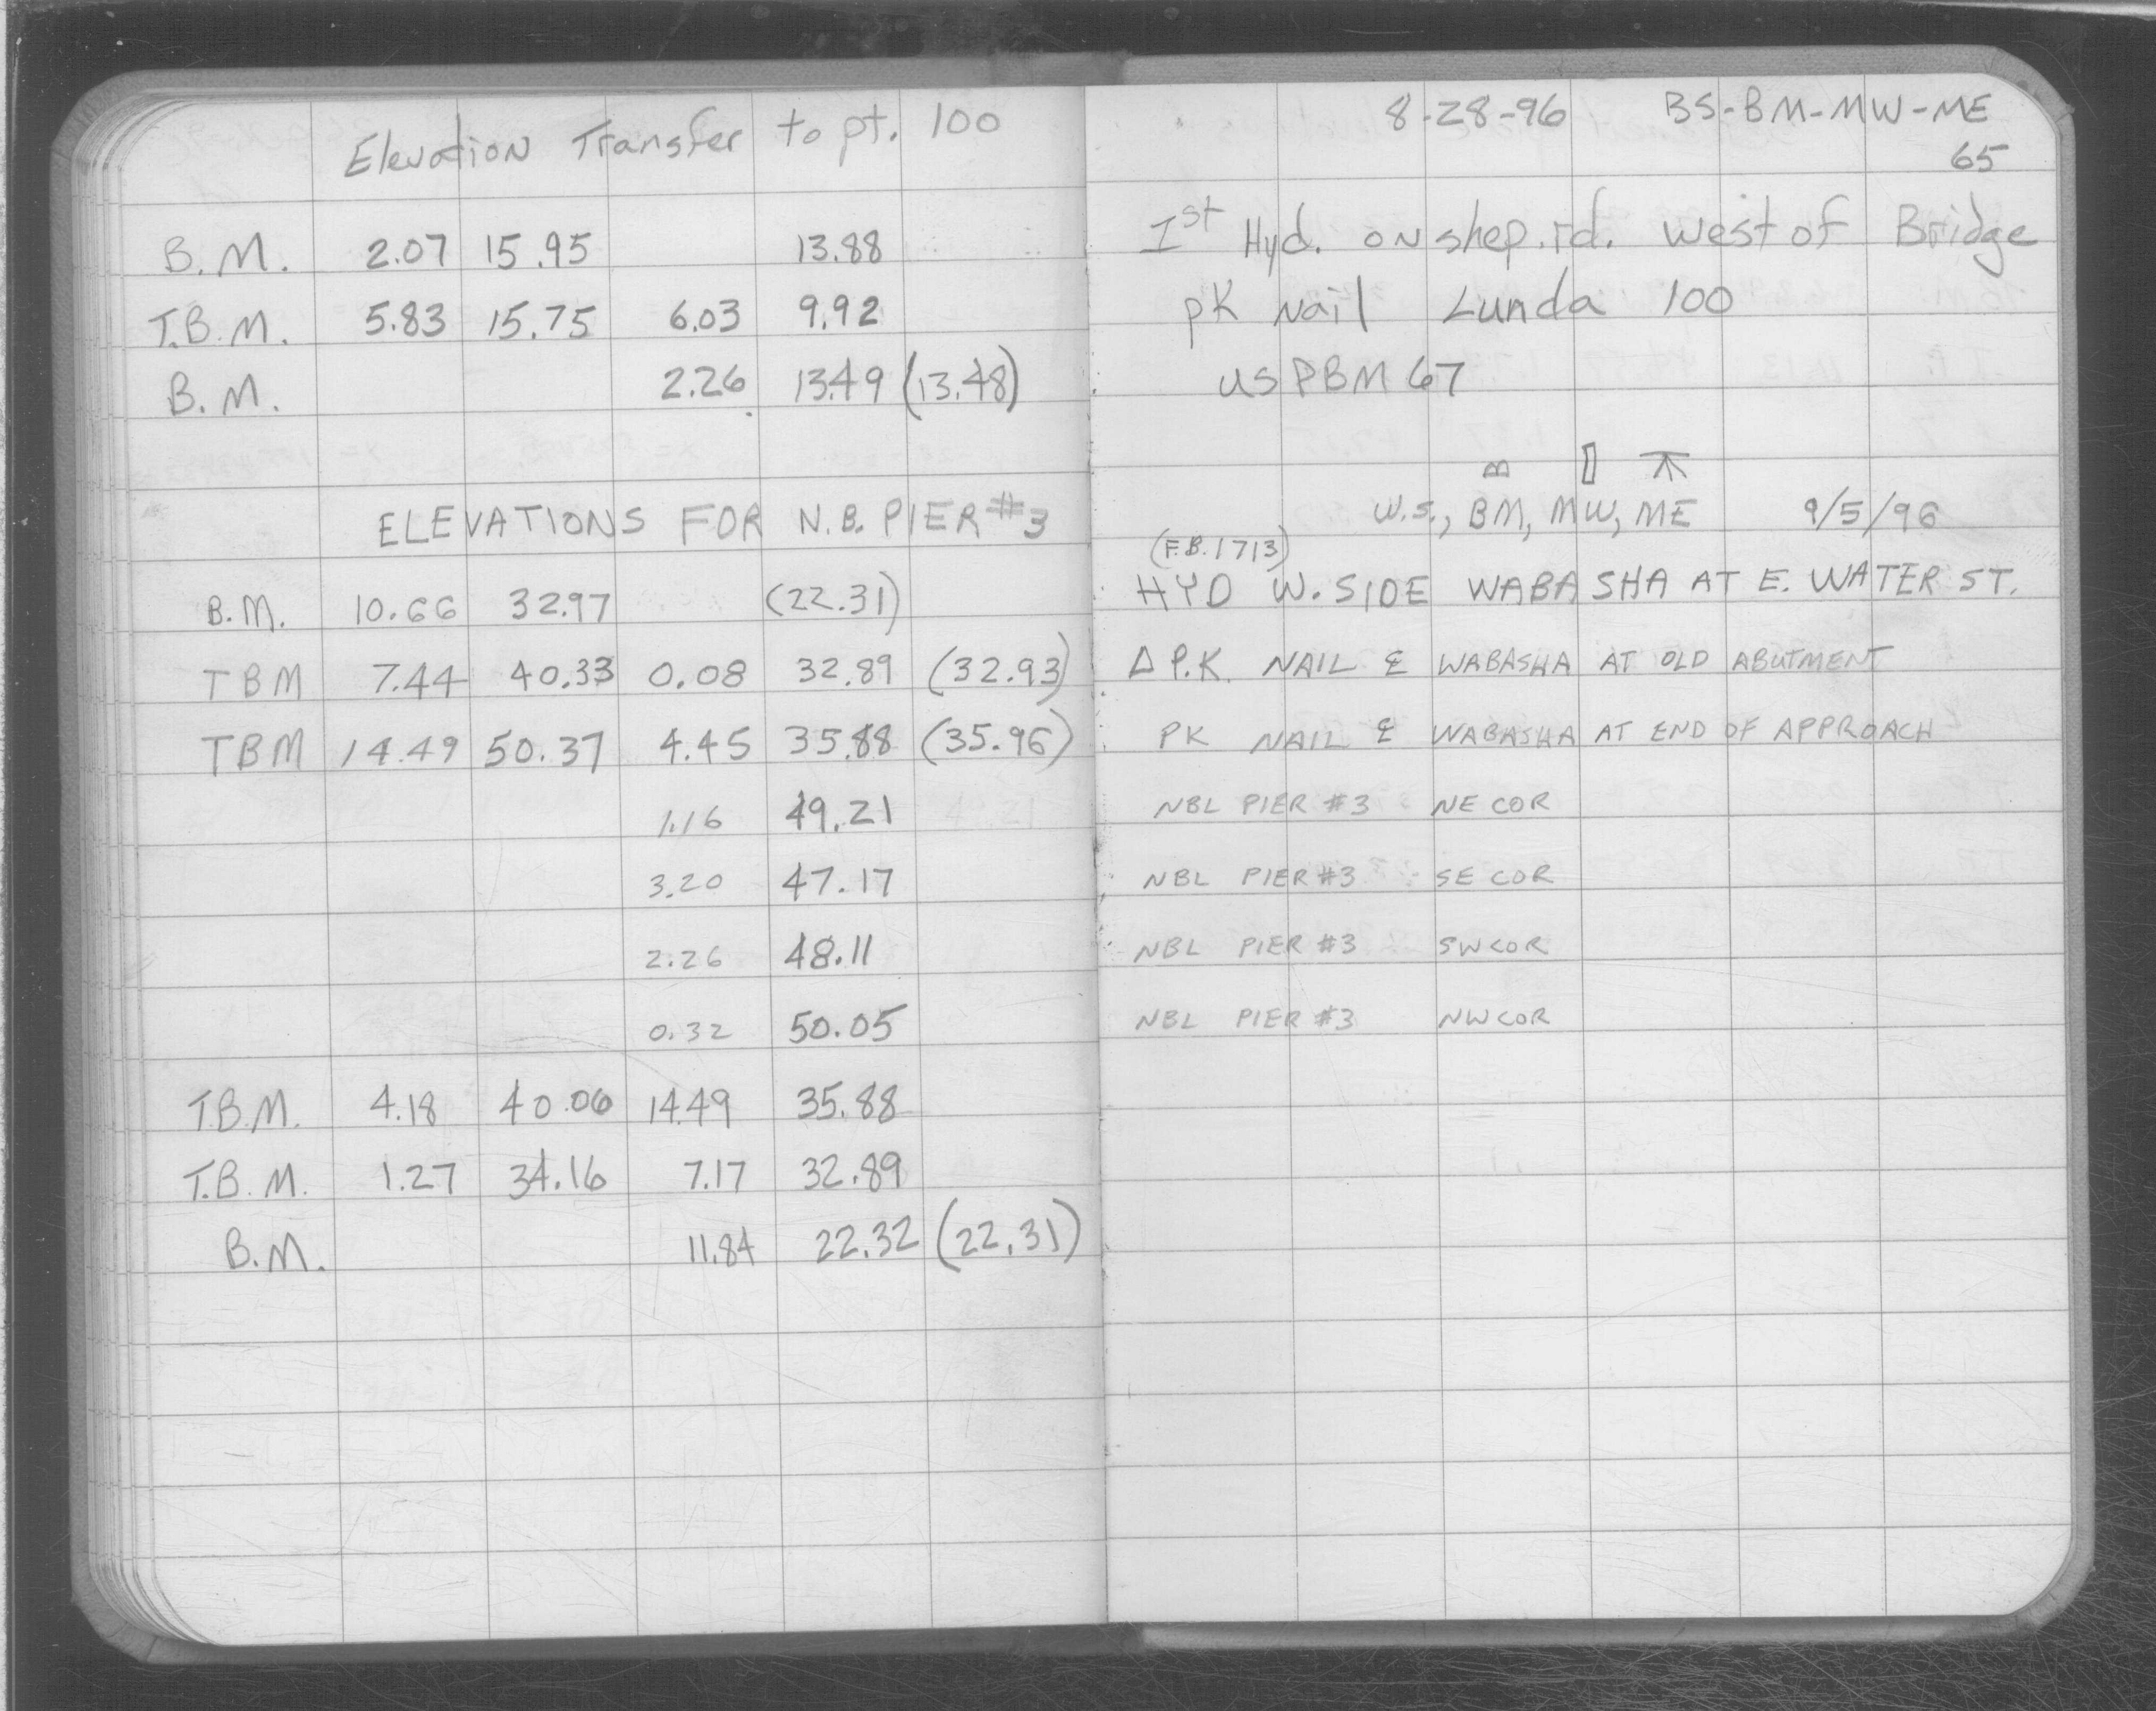 Elevation Transfer to pt. 100
B.M. 2.07 15.95 13.88
T.B.M. 5.83 15.75 6.03 9.92
B.M. 2.26 13.49 (13.48)
ELEVATIONS FOR N.B. PIER #3
B.M. 10.66 32.97 (22.31)
TBM 7.44 40.33 0.08 32.89 (32.93)
TBM 14.49 50.37 4.45 35.88 (35.96)
1.16 49.21
3.20 47.17
2.26 48.11
0.32 50.05
T.B.M. 4.18 40.06 14.49 35.88
T.B.M. 1.27 34.16 7.17 32.89
B.M. 11.84 22.32 (22.31)
8-28-96 BS-BM-MW-ME
65
1st Hyd. on shep. rd. west of Bridge
pK Nail Lunda 100
US PBM 67
W.S., BM, MW, ME 9/5/96
(F.B. 1713)
HYD W. SIDE WABASHA AT E. WATER ST.
Δ P.K. NAIL ℄ WABASHA AT OLD ABUTMENT
PK NAIL ℄ WABASHA AT END OF APPROACH
NBL PIER #3 NE COR
NBL PIER #3 SE COR
NBL PIER #3 SW COR
NBL PIER #3 NW COR